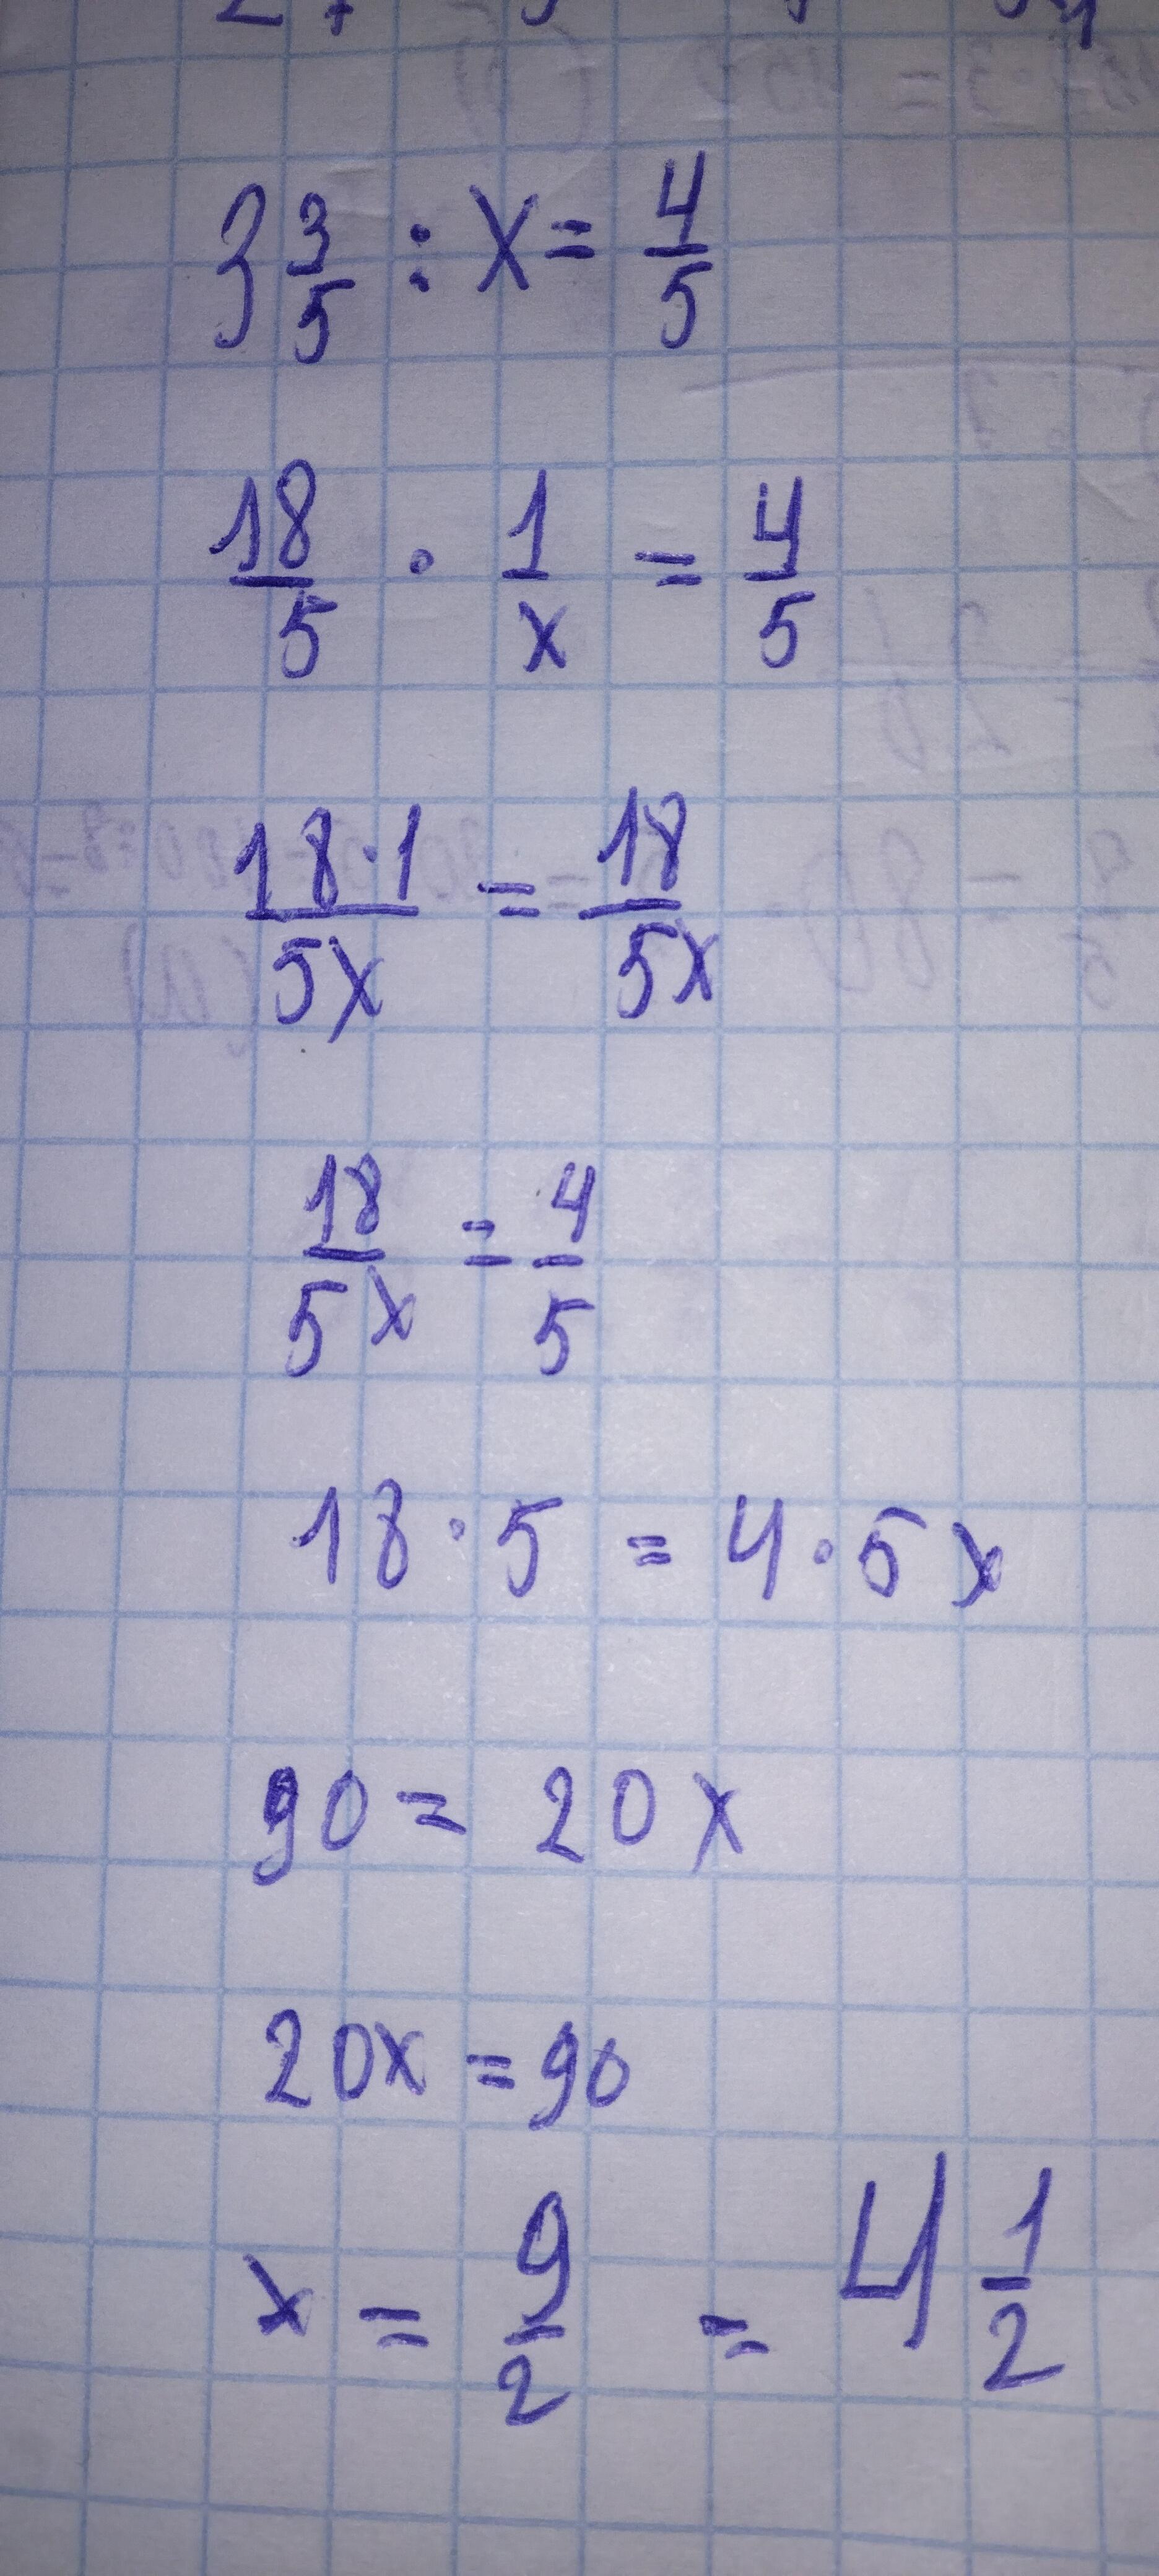 3 3/5 : x = 4/5
18/5 · 1/x = 4/5
18·1/5x = 18/5x
18/5x = 4/5
18·5 = 4·5x
90 = 20x
20x = 90
x = 9/2 = 4 1/2